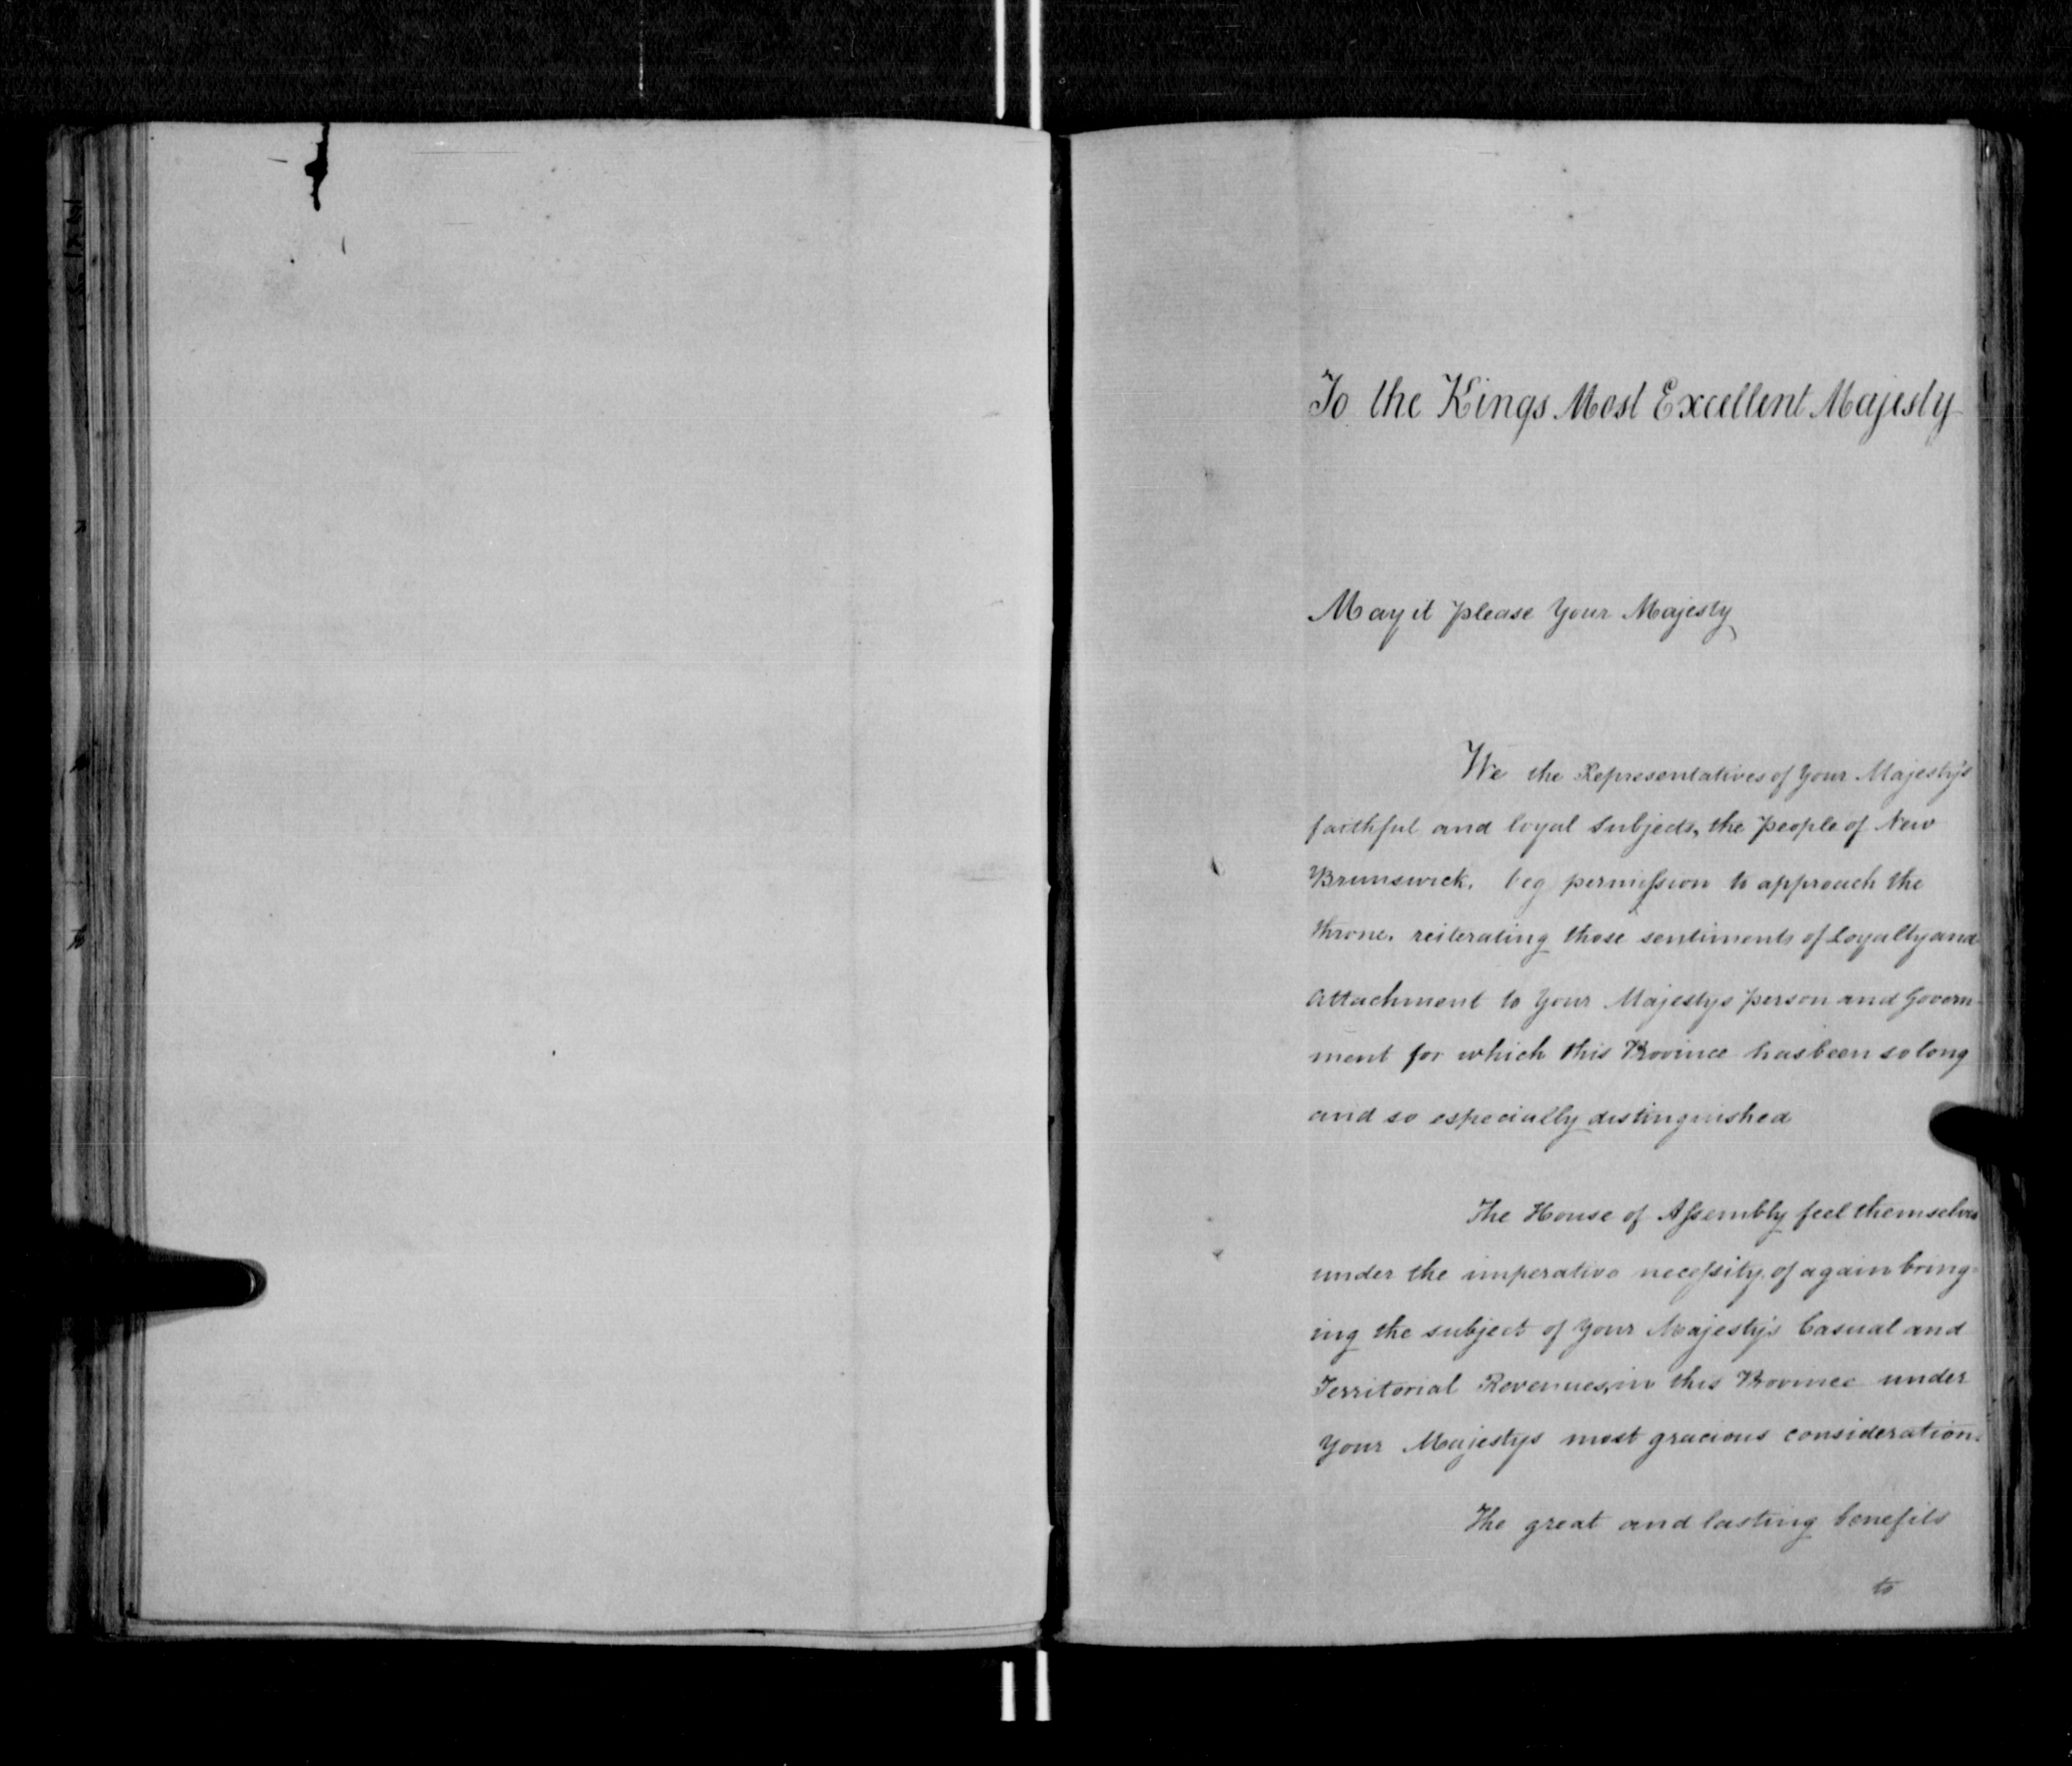 To the Kings Most Excellent Majesty
May it please Your Majesty
We the Representatives of Your Majesty's
faithful and loyal Subjects, the People of New
Brunswick, beg permission to approach the
throne, reiterating those sentiments of Loyalty and
Attachment to Your Majestys person and Govern-
ment for which this Province has been so long
and so especially distinguished
The House of Assembly feel themselves
under the imperative necessity, of again bring-
ing the subject of Your Majesty's Casual and
Territorial Revenues, in this Province under
Your Majestys most gracious consideration.
The great and lasting benefits
to